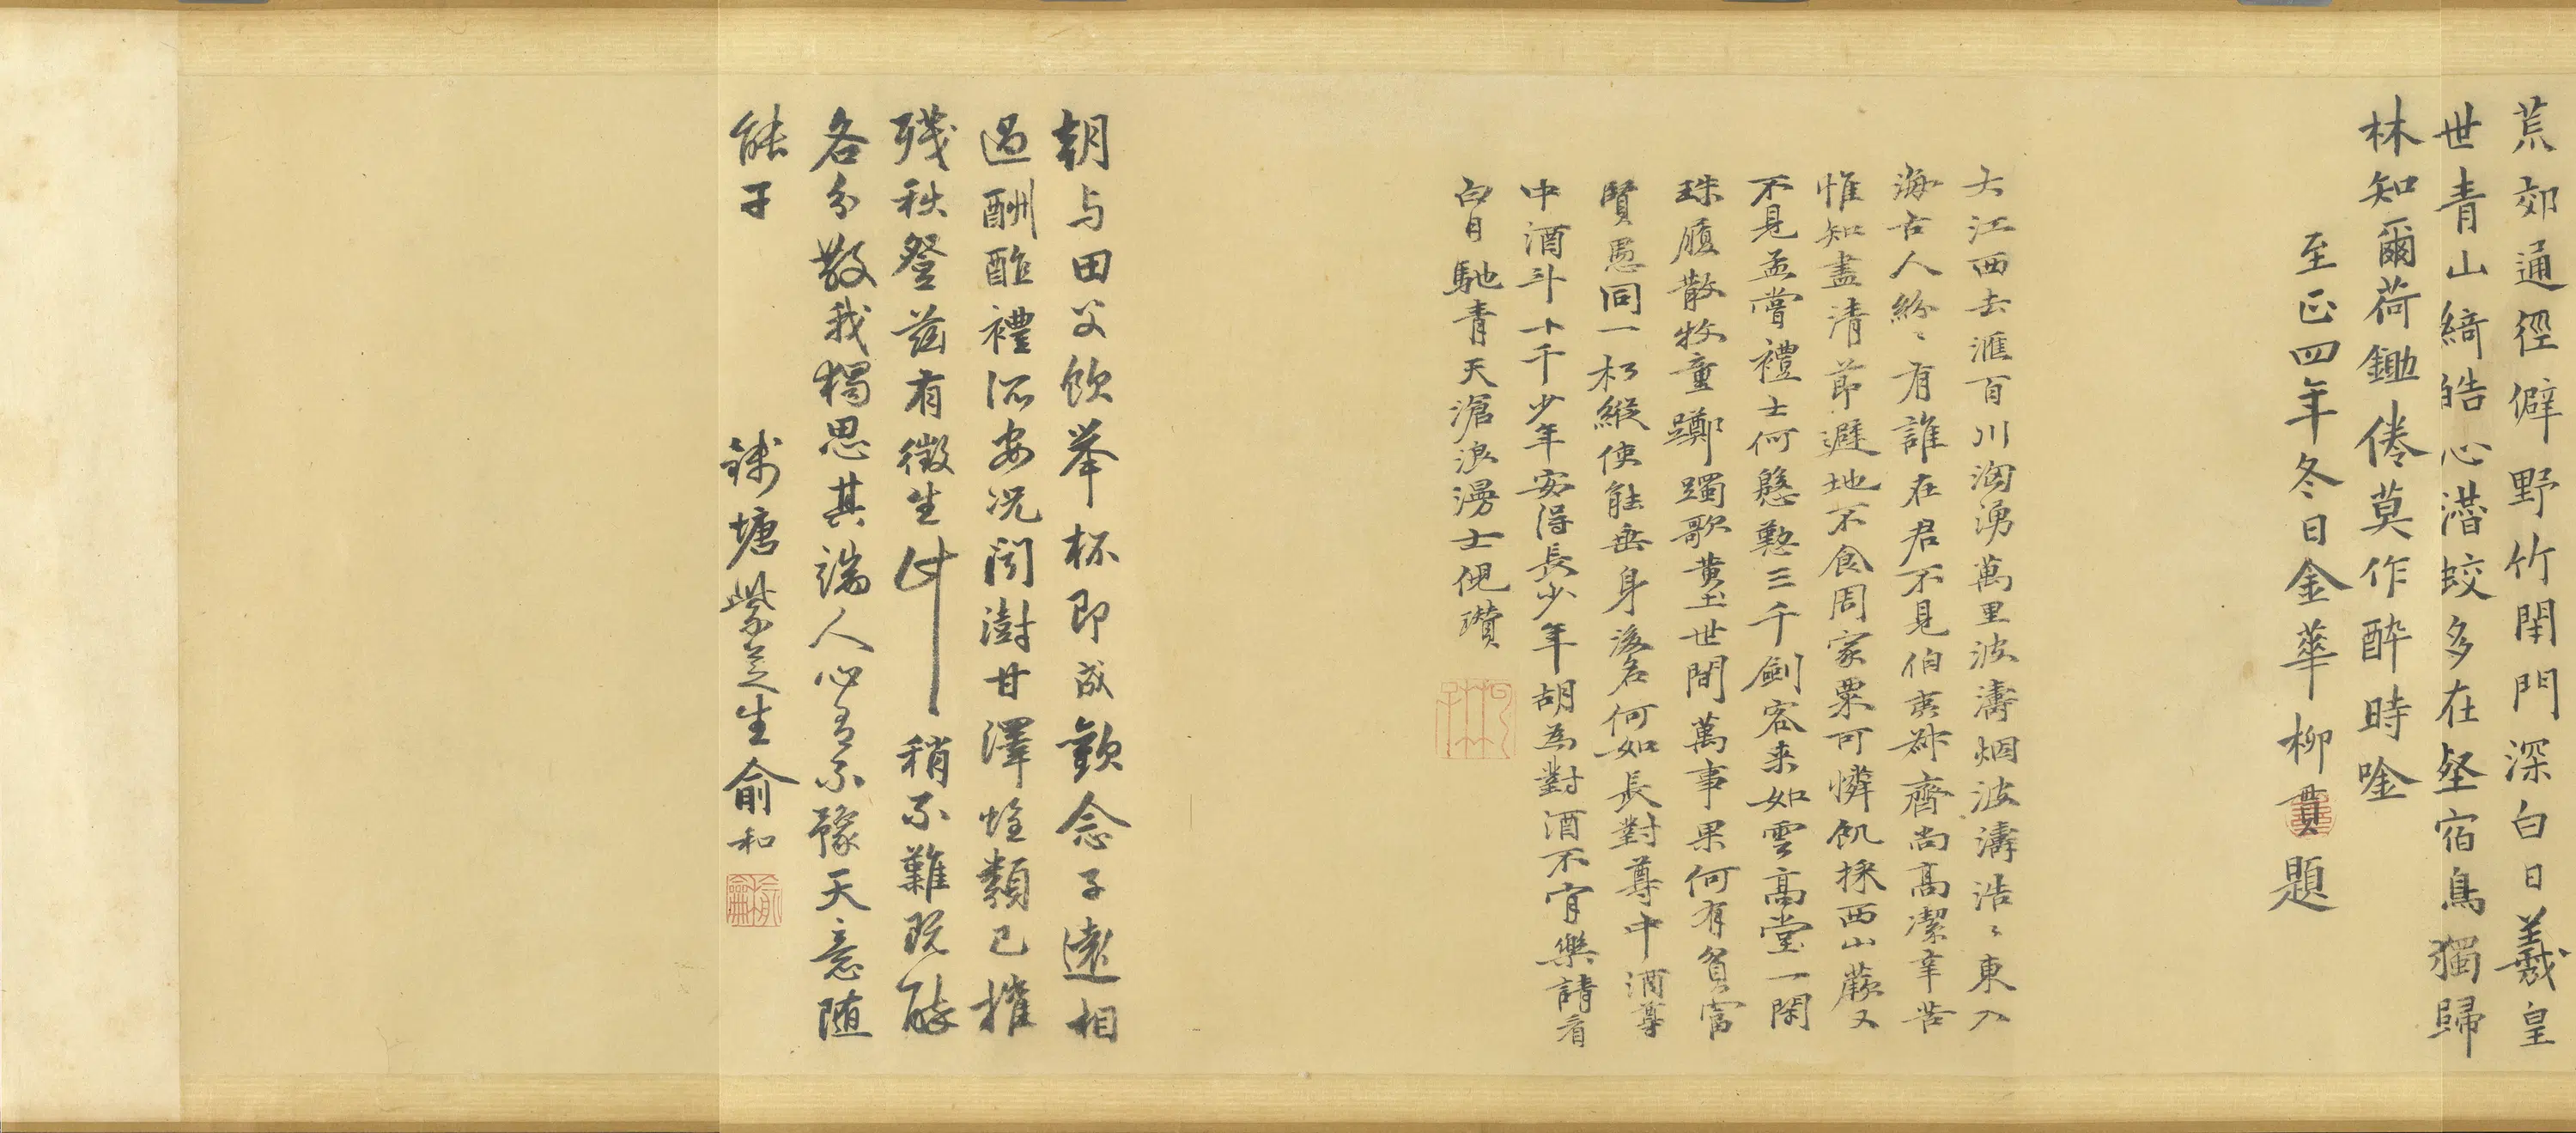 荒郊通徑僻野竹閑門深白日羲皇
世青山綺皓心潛蛟多在壑宿鳥獨歸
林知爾荷鋤倦莫作醉時唫
至正四年冬日金華柳貫題
大江西去滙百川洶湧萬里波濤烟波濤浩〻東入
海古人紛〻有誰在君不見伯夷叔齊尚高潔辛苦
惟知盡清節避地不食周家粟可憐飢採西山蕨又
不見孟嘗禮士何慇懃三千劍客来如雲高堂一閑
珠履散牧童躑躅歌黄土世間萬事果何有貧富
賢愚同一朽縱使能垂身後名何如長對尊中酒尊
中酒斗十千少年安得長少年胡為對酒不肯樂請看
白日馳青天滄浪漫士倪瓚
朝与田父飲举杯即成歡念子遠相
過酬酢禮所安况聞澍甘澤恠類已摧
殘秩登兹有徵生計稍不難既醉
各分散我獨思其端人心有不豫天意随
能干
錢塘紫芝生俞和